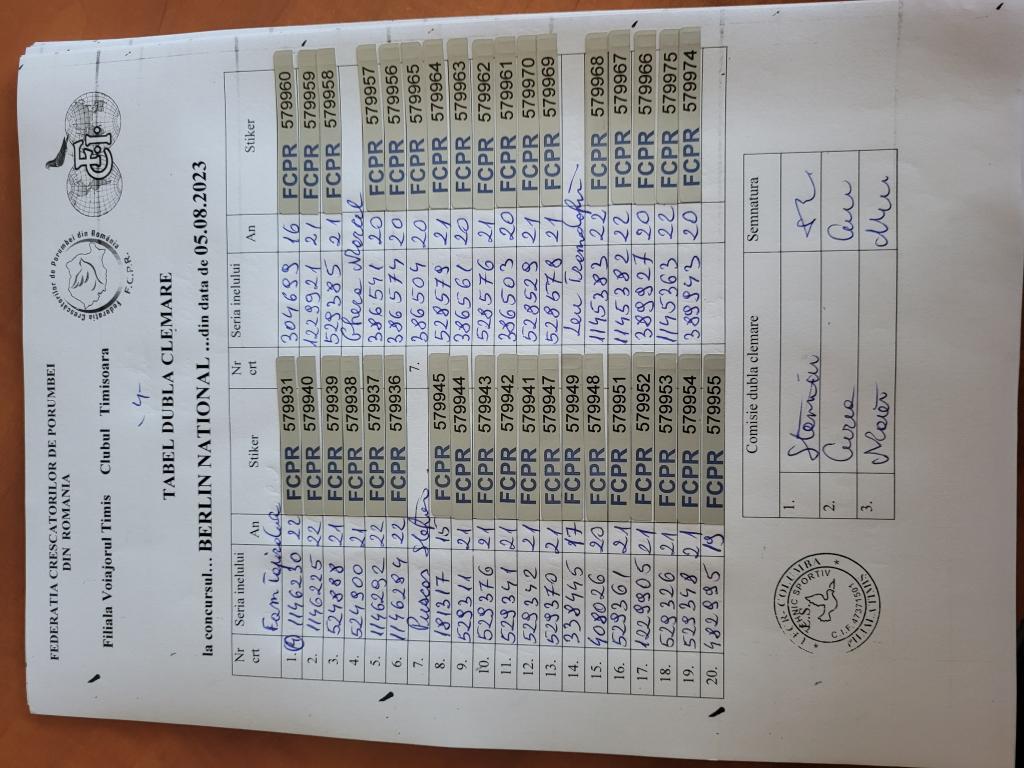 FEDERATIA CRESCATORILOR DE PORUMBEI
DIN ROMANIA
Filiala Voiajorul Timis Clubul Timisoara
Federatia Crescatorilor de Porumbei din România
F.C.P.R.
FCI
-4-
TABEL DUBLA CLEMARE
la concursul... BERLIN NATIONAL ...din data de 05.08.2023
Nr crt Seria inelului An Stiker Nr crt Seria inelului An Stiker
1. 1146230 22 FCPR 579931 304699 16 FCPR 579960
2. 1146225 22 FCPR 579940 1229921 21 FCPR 579959
3. 524888 21 FCPR 579939 529385 21 FCPR 579958
4. 524900 21 FCPR 579938 Ghera Viorel
5. 1146292 22 FCPR 579937 386541 20 FCPR 579957
6. 1146284 22 FCPR 579936 386574 20 FCPR 579956
7. Puscas 7. 386504 20 FCPR 579965
8. 181317 15 FCPR 579945 528579 21 FCPR 579964
9. 529311 21 FCPR 579944 386561 20 FCPR 579963
10. 529376 21 FCPR 579943 528576 21 FCPR 579962
11. 529341 21 FCPR 579942 386503 20 FCPR 579961
12. 529342 21 FCPR 579941 528529 21 FCPR 579970
13. 529370 21 FCPR 579947 528578 21 FCPR 579969
14. 338445 17 FCPR 579949
15. 408026 20 FCPR 579948 1145383 22 FCPR 579968
16. 529361 21 FCPR 579951 1145382 22 FCPR 579967
17. 1229905 21 FCPR 579952 389927 20 FCPR 579966
18. 529326 21 FCPR 579953 1145363 22 FCPR 579975
19. 529348 21 FCPR 579954 389943 20 FCPR 579974
20. 4829995 19 FCPR 579955
Comisie dubla clemare Semnatura
1.
2.
3.
COLUMBA
SPORTIV
C.I.F.